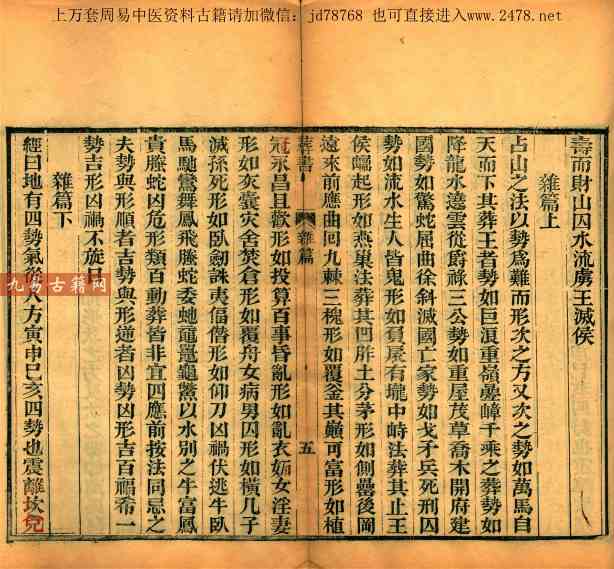 上万套周易中医资料古籍请加微信：jd78768 也可直接进入www.2478.net
壽而財山囚水流虜王滅侯
雜篇上
占山之法以勢爲難而形次之方又次之勢如萬馬自
天而下其葬王者勢如巨浪重嶺疊嶂千乘之葬勢如
降龍水遶雲從爵祿三公勢如重屋茂草喬木開府建
國勢如驚蛇屈曲徐斜滅國亡家勢如戈矛兵死刑囚
勢如流水生人皆鬼形如負扆有壠中峙法葬其止王
侯崛起形如燕巢法葬其凹胙土分茅形如側罍後岡
遠來前應曲回九棘三槐形如覆釜其巔可富形如植
葬書 雜篇 五
冠永昌且歡形如投算百事昏亂形如亂衣妬女淫妻
形如灰囊灾舍焚倉形如覆舟女病男囚形如橫几子
滅孫死形如臥劒誅夷偪僭形如仰刀凶禍伏逃牛臥
馬馳鸞舞鳳飛騰蛇委虵黿鼉龜鱉以水別之牛富鳳
貴騰蛇凶危形類百動葬皆非宜四應前按法同忌之
夫勢與形順者吉勢與形逆者凶勢凶形吉百福希一
勢吉形凶禍不旋日
雜篇下
經曰地有四勢氣從八方寅申巳亥四勢也震離坎兌
九易古籍网